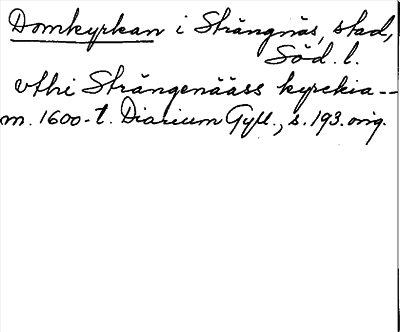 Domkyrkan i Strängnäs, stad,
Söd. l.
vthi Strängenääss kyrckia --
m. 1600-t. Diarium Gyll., s. 193. orig.